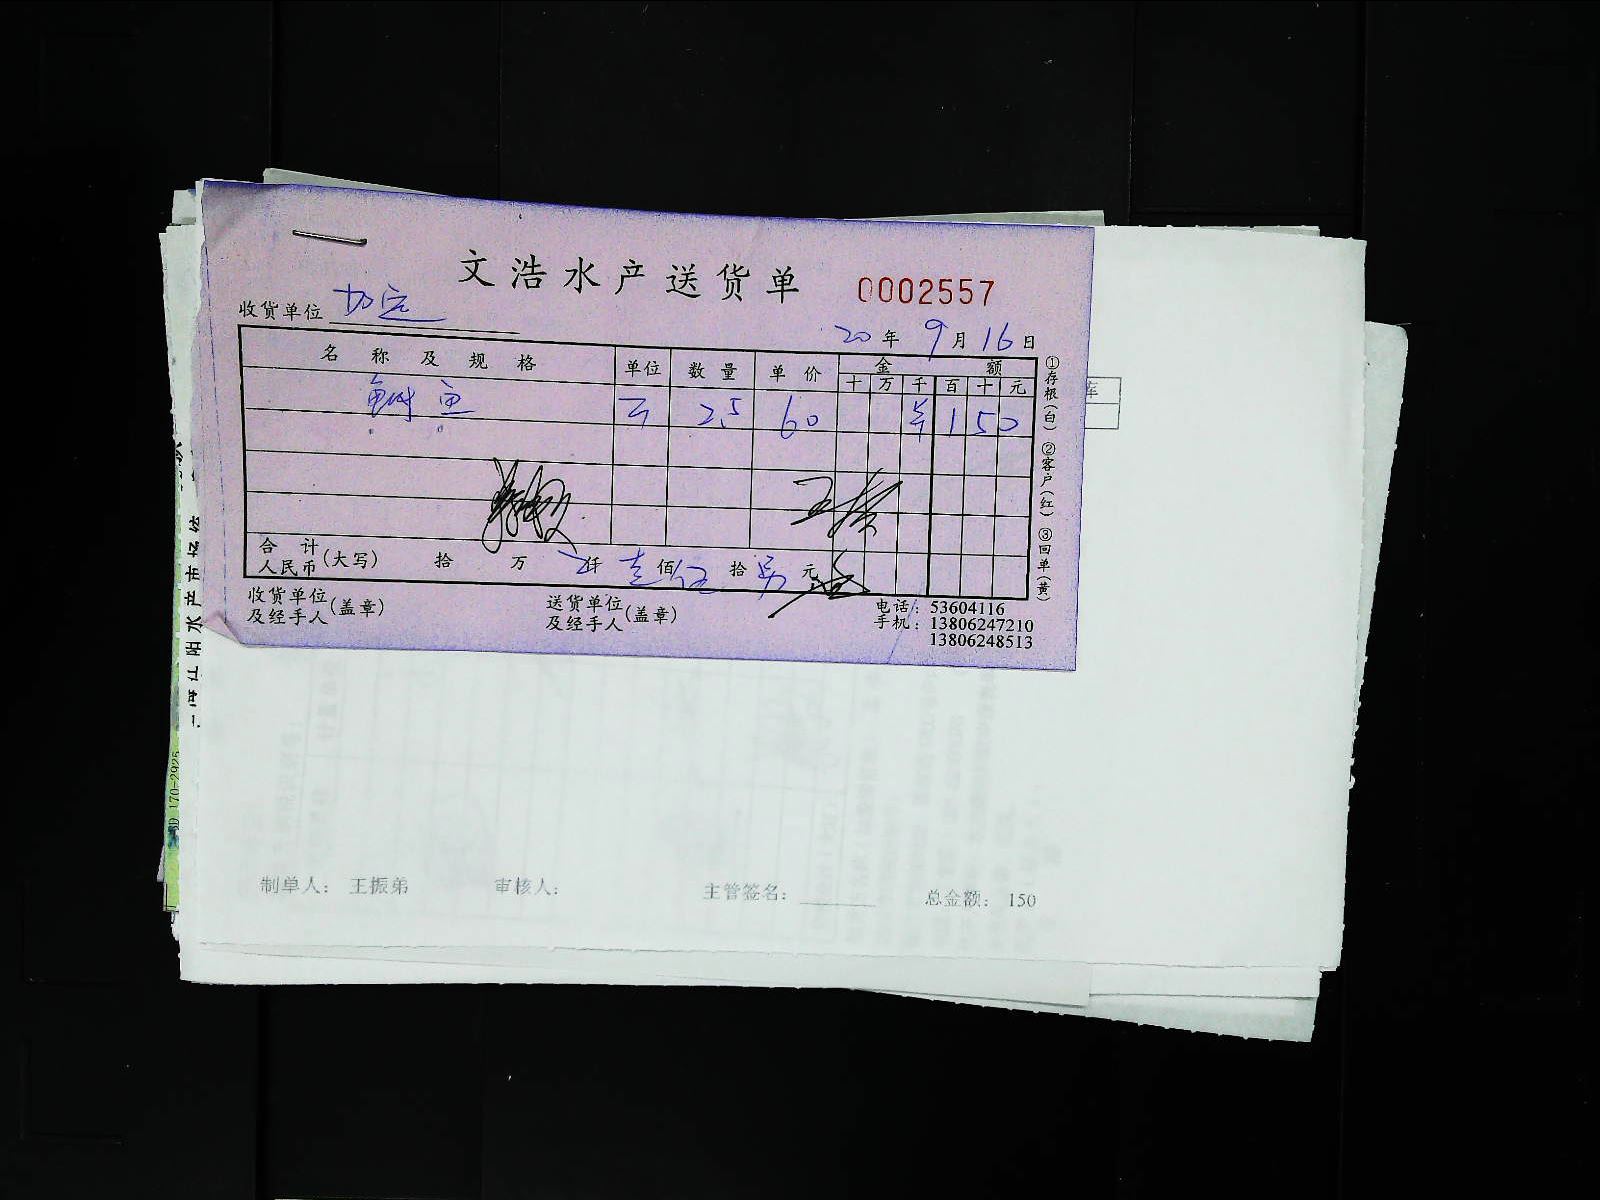 文浩水产送货单 0002557
收货单位
20年9月16日
名称及规格 单位 数量 单价 金额
十 万 千 百 十 元
鱼 2.5 60 ¥ 1 5 0
合计
人民币(大写) 拾 万 仟 壹佰伍拾 元
收货单位
及经手人(盖章)
送货单位
及经手人(盖章)
电话:53604116
手机:13806247210
13806248513
①存根(白) ②客户(红) ③回单(黄)
库
上海江阳水产市场经
170-2925
制单人: 王振弟 审核人: 主管签名: 总金额: 150